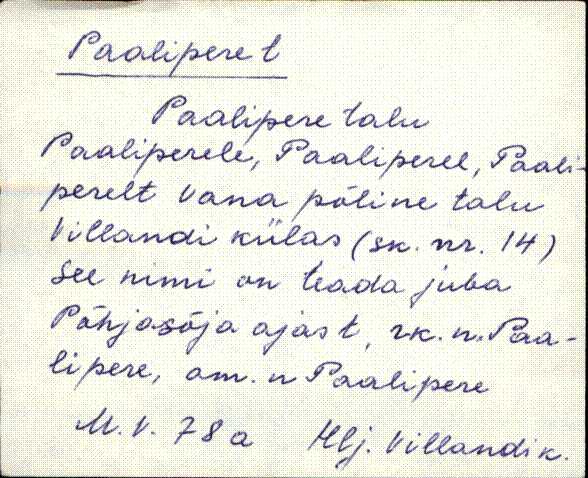 Paalipere t
Paalipere talu
Paaliperele, Paaliperel, Paali-
perelt Vana põline talu
Villandi külas (sk. nr. 14)
See nimi on teada juba
Põhjasõja ajast, rk. n. Paa-
lipere, am. n Paalipere
M. V. 78 a Hlj. Villandi k.